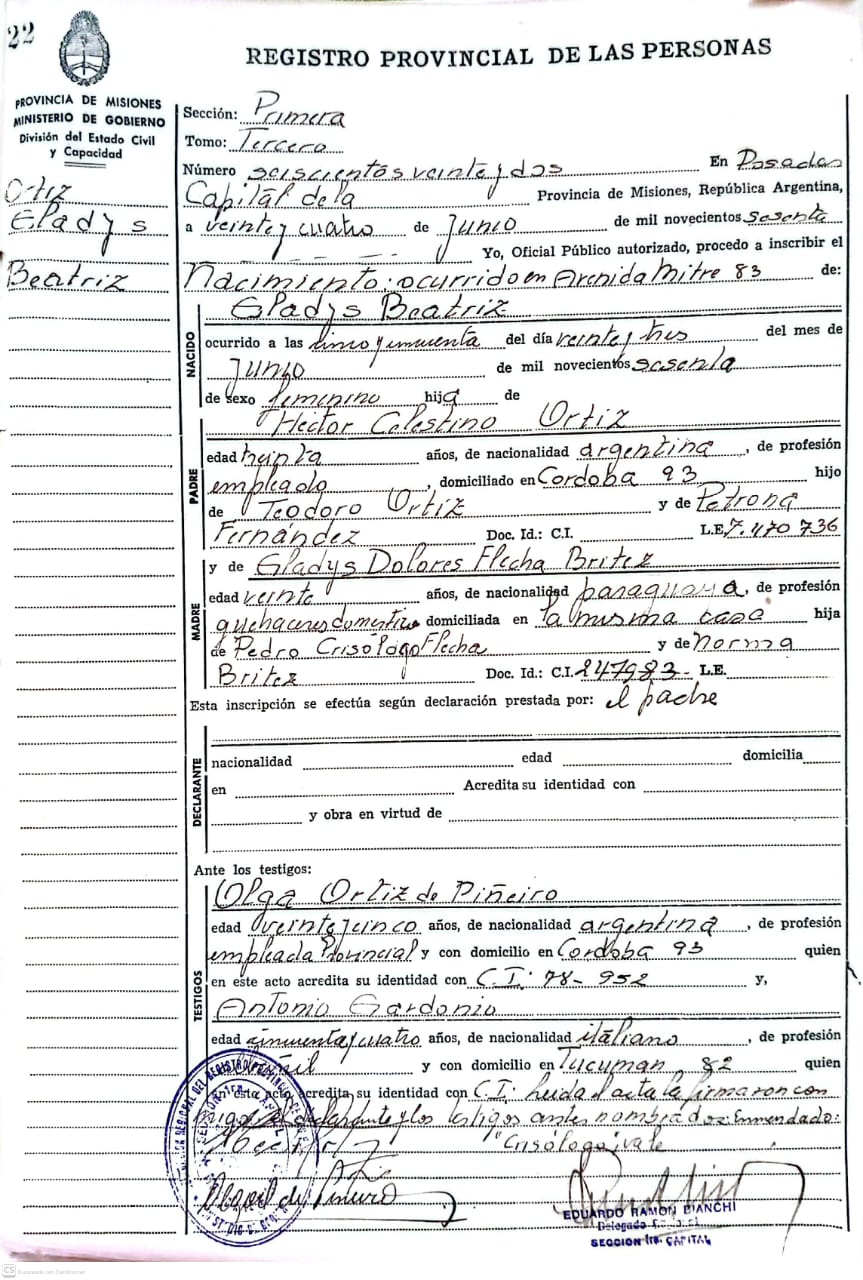 22
REGISTRO PROVINCIAL DE LAS PERSONAS
PROVINCIA DE MISIONES
MINISTERIO DE GOBIERNO
División del Estado Civil
y Capacidad
Ortiz
Gladys
Beatriz
Sección: Primera
Tomo: Tercero
Número seiscientos veinte y dos En Posadas
Capital de la Provincia de Misiones, República Argentina,
a veinte y cuatro de Junio de mil novecientos sesenta
Yo, Oficial Público autorizado, procedo a inscribir el
Nacimiento: ocurrido en Avenida Mitre 83 de:
NACIDO
Gladys Beatriz
ocurrido a las cinco y cincuenta del día veinte y tres del mes de
Junio de mil novecientos sesenta
de sexo femenino hija de
PADRE
Hector Celestino Ortiz
edad treinta años, de nacionalidad argentina, de profesión
empleado, domiciliado en Cordoba 93 hijo
de Teodoro Ortiz y de Petrona
Fernández Doc. Id.: C.I. L.E. 7.470 736
MADRE
y de Gladys Dolores Flecha Britez
edad veinte años, de nacionalidad paraguaya, de profesión
quehaceres domesticos domiciliada en la misma casa hija
de Pedro Crisólogo Flecha y de Norma
Britez Doc. Id.: C.I. 247983- L.E.
Esta inscripción se efectúa según declaración prestada por: el padre
DECLARANTE
nacionalidad edad domicilia
en Acredita su identidad con
y obra en virtud de
Ante los testigos:
TESTIGOS
Olga Ortiz de Piñeiro
edad veinte y cinco años, de nacionalidad argentina, de profesión
empleada Provincial y con domicilio en Cordoba 93 quien
en este acto acredita su identidad con C.I. 78-952 y,
Antonio Gardonio
edad cincuenta y cuatro años, de nacionalidad italiano, de profesión
y con domicilio en Tucuman 82 quien
en este acto acredita su identidad con C.I: leida el acta la firmaron con
migo el declarante y los testigos antes nombrados: Enmendado:
"Crisólogo", vale
EDUARDO RAMON BIANCHI
Delegado
SECCION 1ra. CAPITAL
CS Scanned with CamScanner